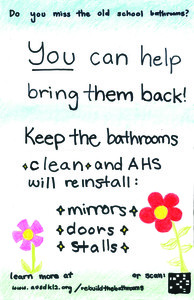 Do you miss the old school bathrooms?
You can help
bring them back!
Keep the bathrooms
clean and AHS
will reinstall:
mirrors
doors
stalls
learn more at or scan:
www.ausdk12.org/rebuildthebathrooms